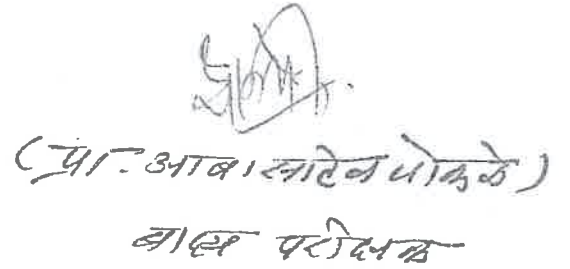 (प्रा. आबासाहेब पोकळे)
बाह्य परीक्षक